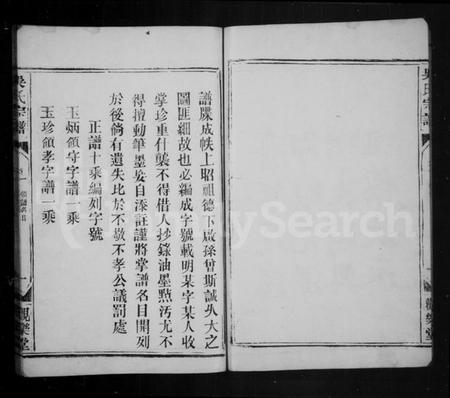 譜牒成帙上昭祖德下啟孫曾斯誠久大之
圖匪細故也必編成字號載明某字某人收
掌珍重什襲不得借人抄錄油墨點污尤不
得擅動筆墨妄自添註謹將掌譜名目開列
於後倘有遺失比於不敬不孝公議罰處
正譜十乘編列字號
玉炳領守字譜一乘
玉珍領孝字譜一乘
吳氏宗譜
觀樂堂
吳氏宗譜
觀樂堂
MySearch